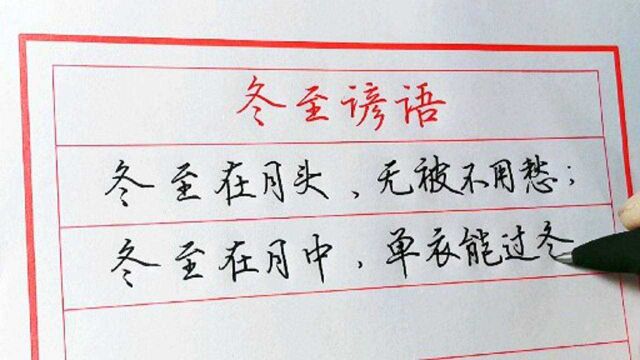 冬至谚语
冬至在月头，无被不用愁；
冬至在月中，单衣能过冬